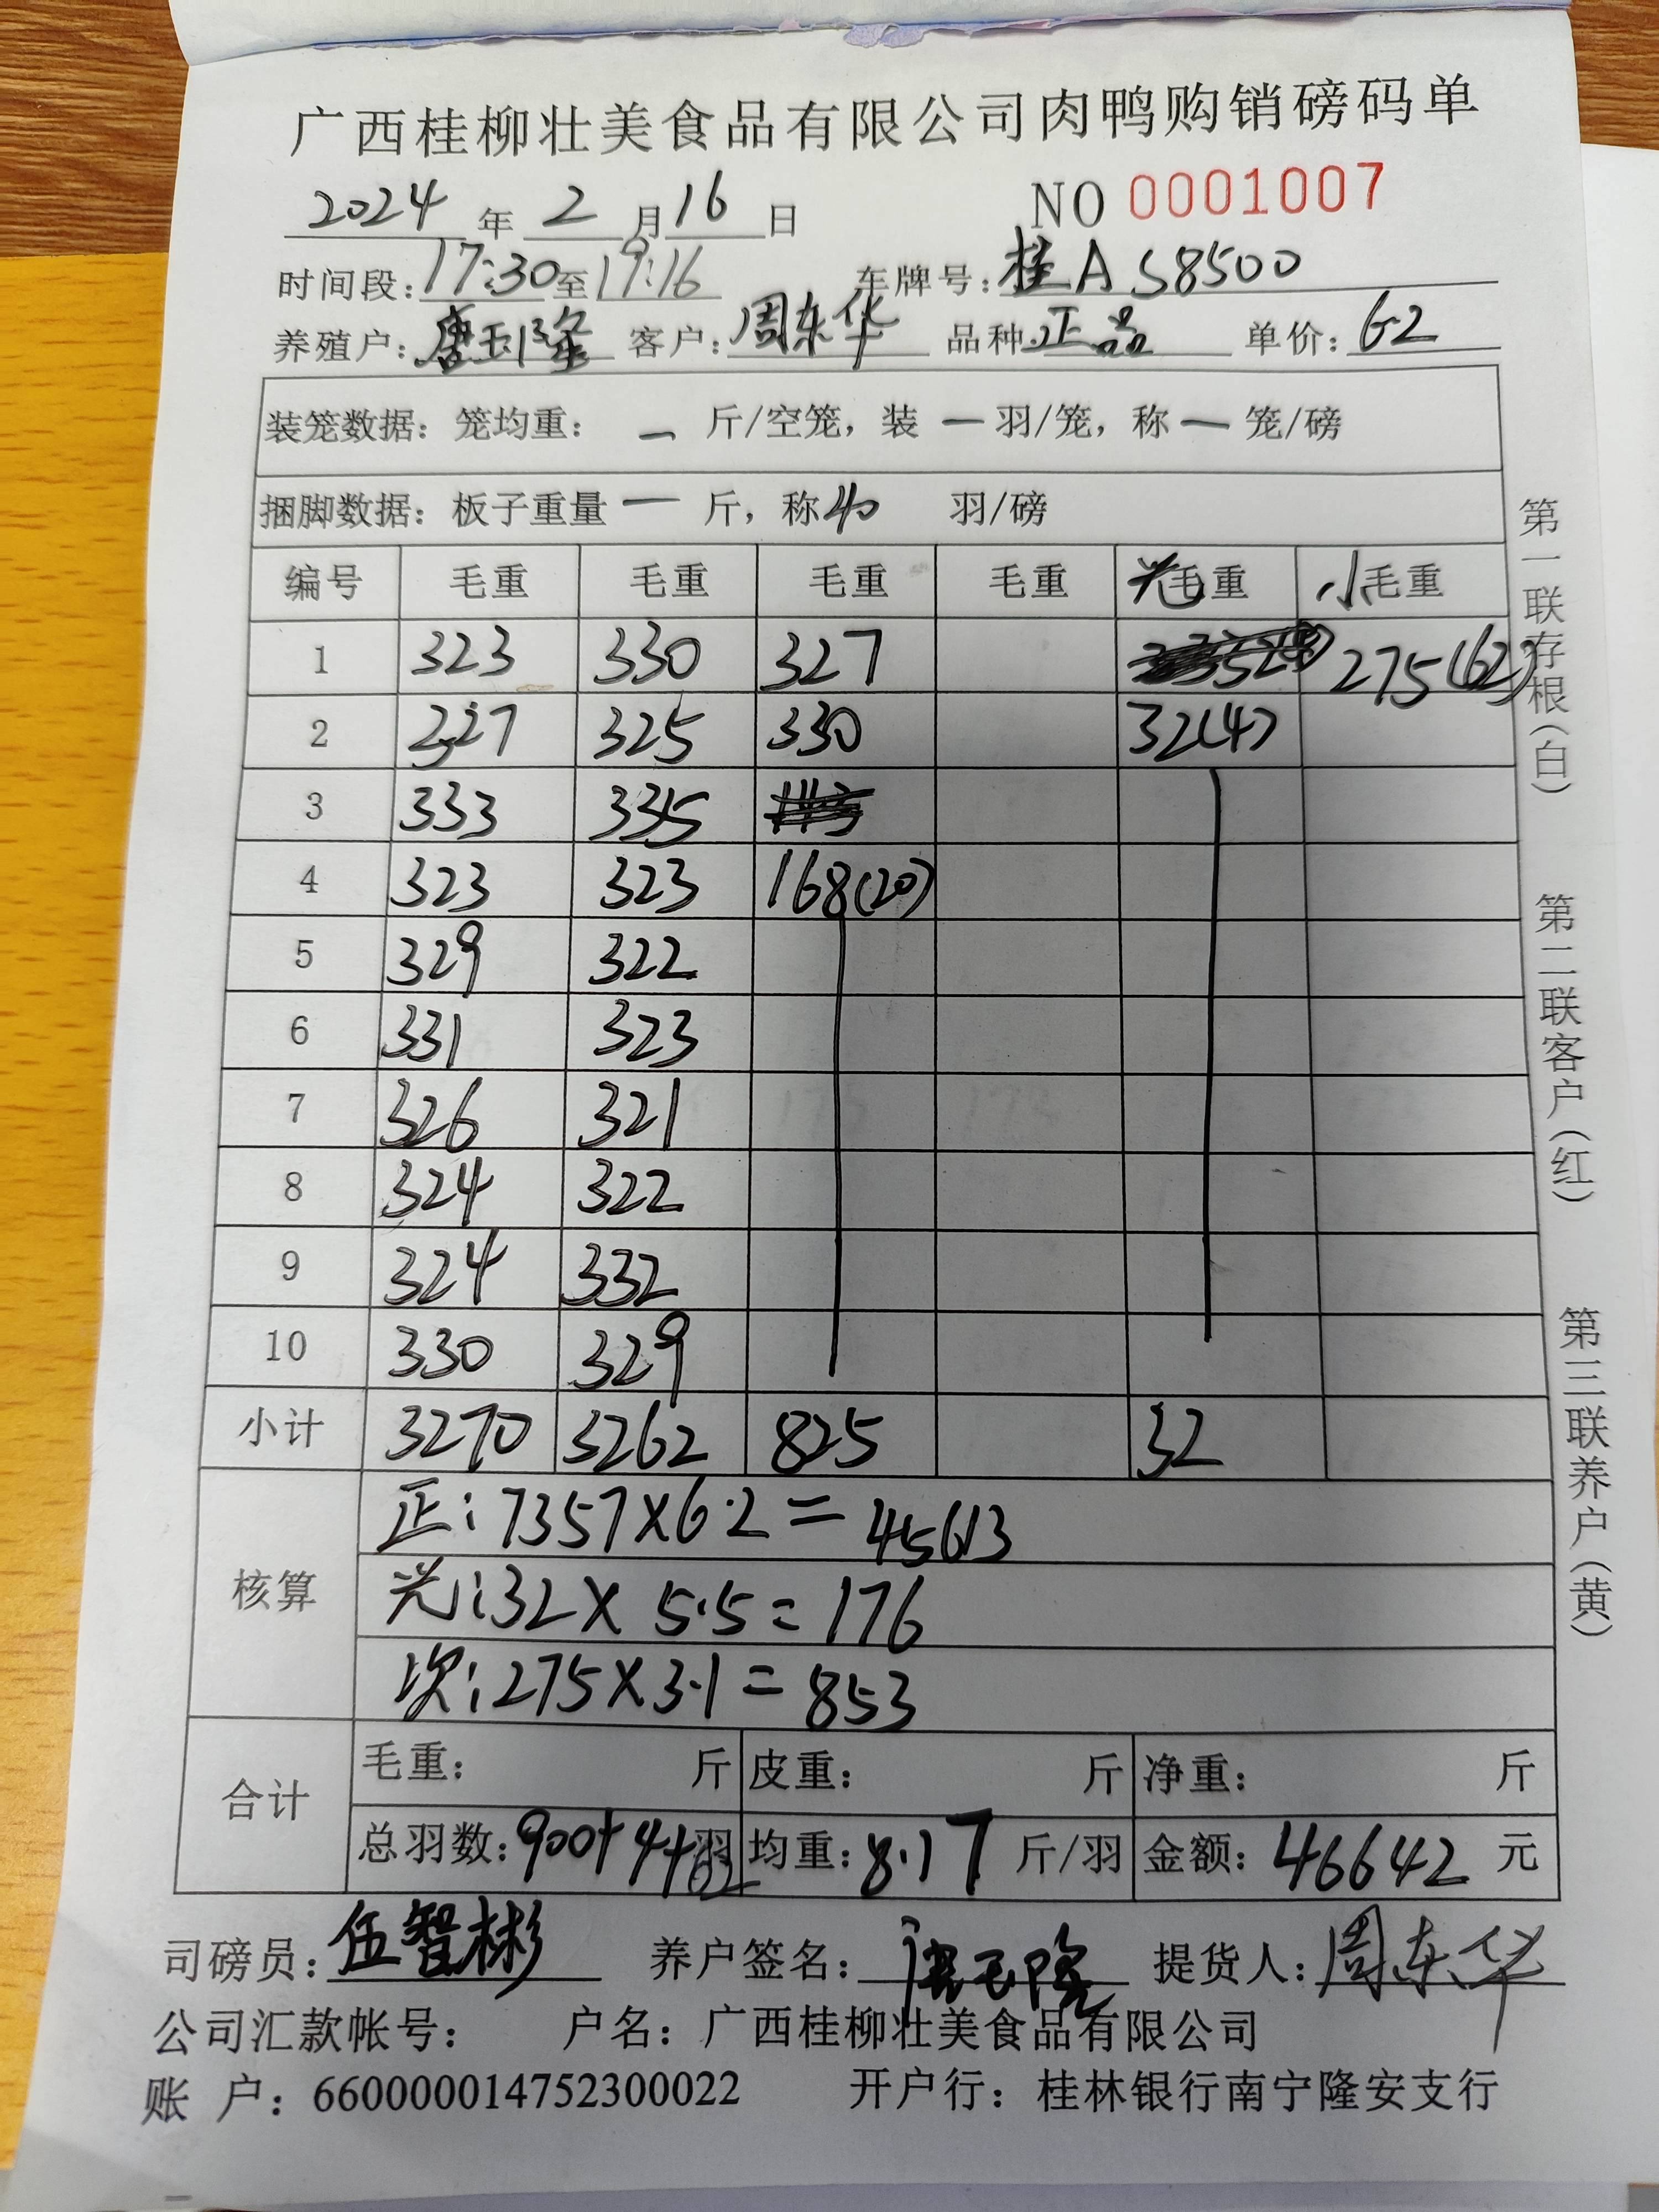 广西桂柳壮美食品有限公司肉鸭购销磅码单
2024 年 2 月 16 日 NO 0001007
时间段: 17:30 至 19:16 车牌号: 桂A S8500
养殖户: 唐玉隆 客户: 周东华 品种: 正品 单价: 6.2
装笼数据: 笼均重: — 斤/空笼, 装 — 羽/笼, 称 — 笼/磅
捆脚数据: 板子重量 — 斤, 称 40 羽/磅
编号 毛重 毛重 毛重 毛重 光毛重 小毛重
1 323 330 327 275(62)
2 327 325 330 32(4)
3 333 335
4 323 323 168(20)
5 329 322
6 331 323
7 326 321
8 324 322
9 324 332
10 330 329
小计 3270 3262 825 32
核算
正: 7357×6.2=45613
光: 32×5.5=176
次: 275×3.1=853
合计
毛重: 斤 皮重: 斤 净重: 斤
总羽数: 900+4+62 羽 均重: 8.17 斤/羽 金额: 46642 元
司磅员: 伍智彬 养户签名: 唐玉隆 提货人: 周东华
公司汇款帐号: 户名: 广西桂柳壮美食品有限公司
账 户: 660000014752300022 开户行: 桂林银行南宁隆安支行
第一联存根(白)
第二联客户(红)
第三联养户(黄)